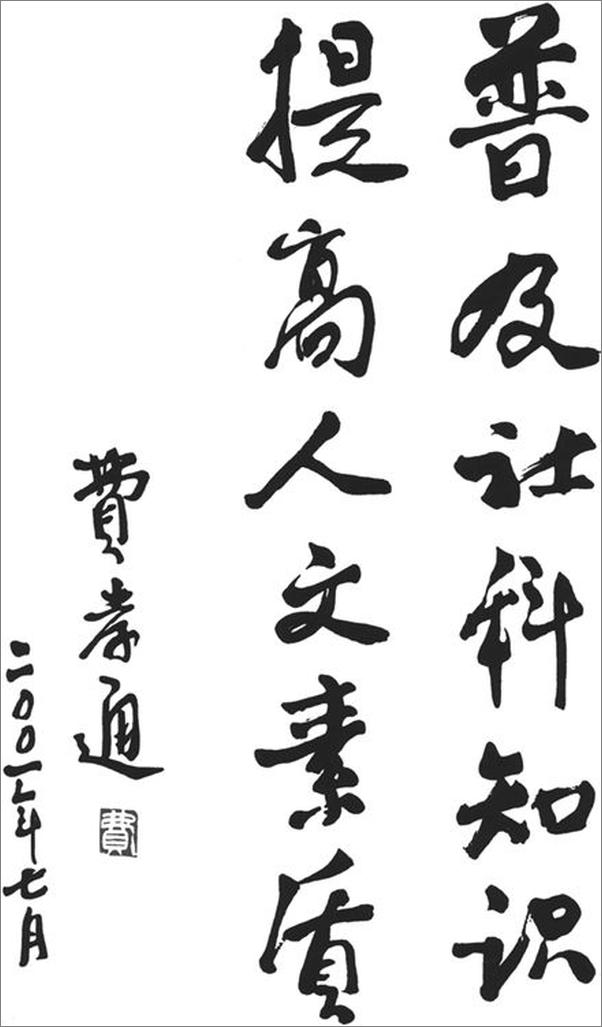 普及社科知识
提高人文素质
費孝通
費
二〇〇一年七月